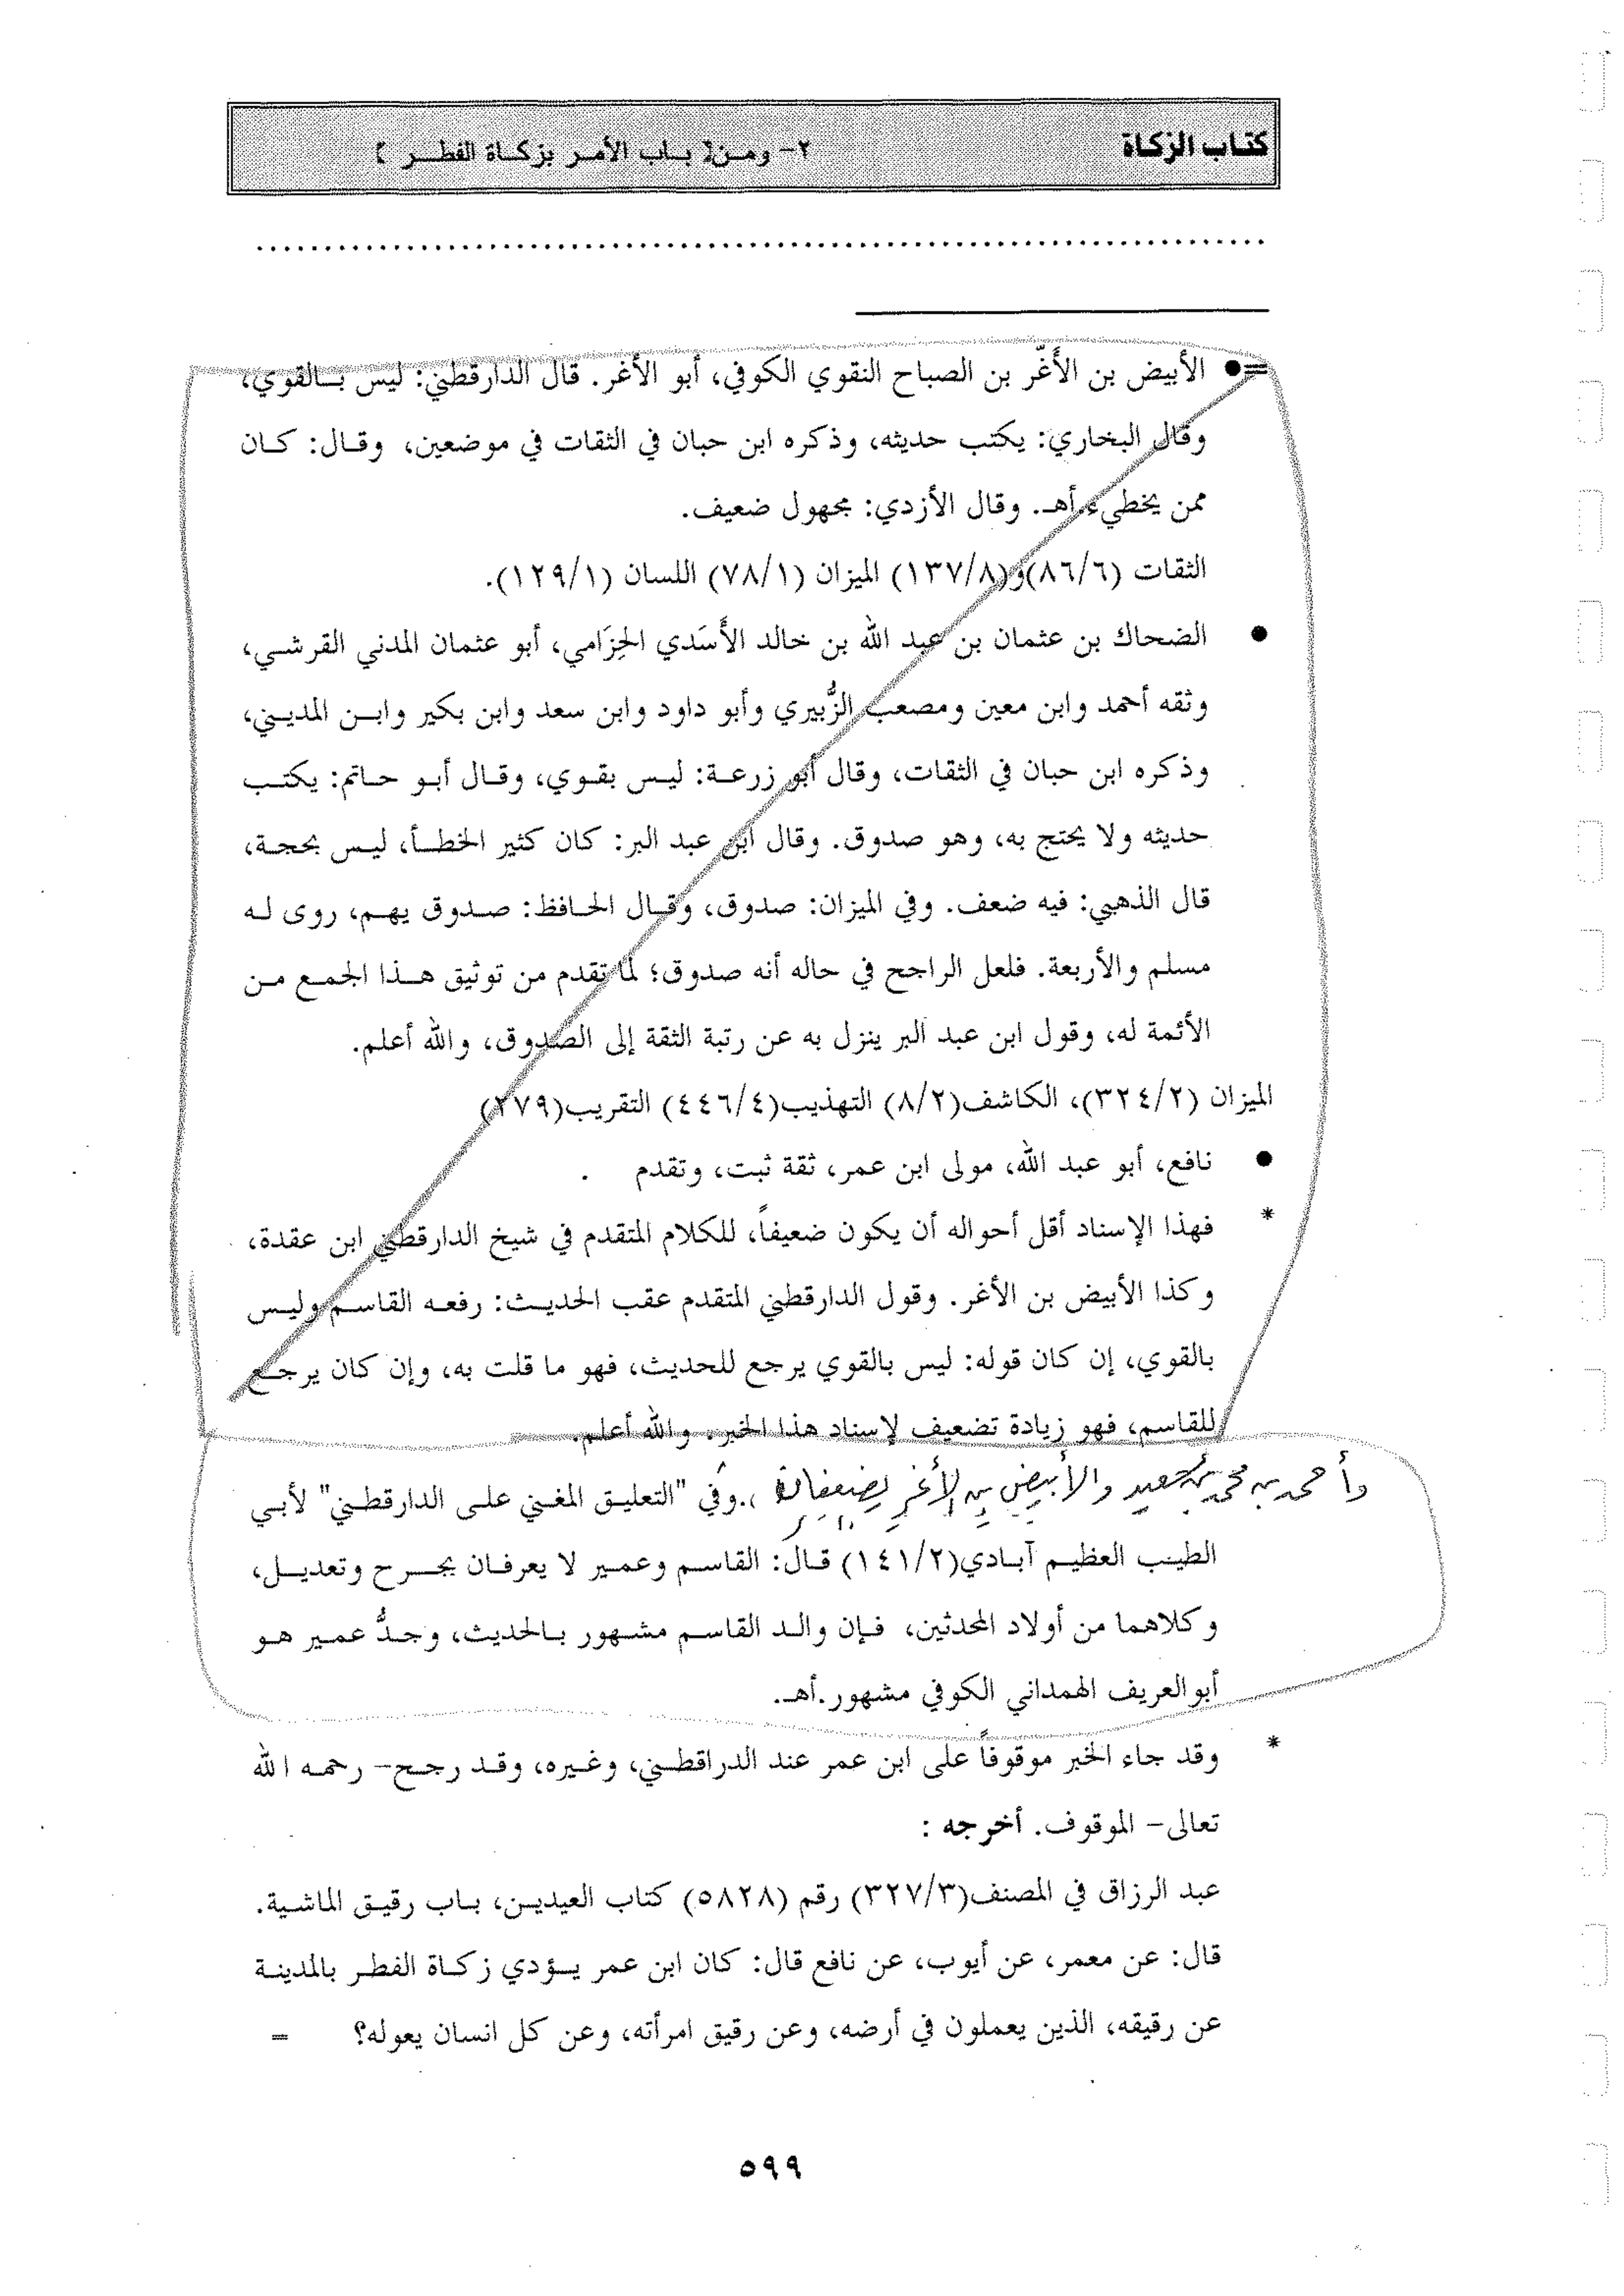 كتاب الزكاة
٢- ومن [ باب الأمر بزكاة الفطر ]
=● الأبيض بن الأَغّر بن الصباح النقوي الكوفي، أبو الأغر. قال الدارقطني: ليس بالقوي،
وقال البخاري: يكتب حديثه، وذكره ابن حبان في الثقات في موضعين، وقال: كان
ممن يخطيء.أهـ. وقال الأزدي: مجهول ضعيف.
الثقات (٨٦/٦)و(١٣٧/٨) الميزان (٧٨/١) اللسان (١٢٩/١).
● الضحاك بن عثمان بن عبد الله بن خالد الأَسَدي الحِزَامي، أبو عثمان المدني القرشي،
وثقه أحمد وابن معين ومصعب الزُّبيري وأبو داود وابن سعد وابن بكير وابن المديني،
وذكره ابن حبان في الثقات، وقال أبو زرعة: ليس بقوي، وقال أبو حاتم: يكتب
حديثه ولا يحتج به، وهو صدوق. وقال ابن عبد البر: كان كثير الخطأ، ليس بحجة،
قال الذهبي: فيه ضعف. وفي الميزان: صدوق، وقال الحافظ: صدوق يهم، روى له
مسلم والأربعة. فلعل الراجح في حاله أنه صدوق؛ لما تقدم من توثيق هذا الجمع من
الأئمة له، وقول ابن عبد البر ينزل به عن رتبة الثقة إلى الصدوق، والله أعلم.
الميزان (٣٢٤/٢)، الكاشف(٨/٢) التهذيب(٤٤٦/٤) التقريب(٢٧٩)
● نافع، أبو عبد الله، مولى ابن عمر، ثقة ثبت، وتقدم .
* فهذا الإسناد أقل أحواله أن يكون ضعيفاً، للكلام المتقدم في شيخ الدارقطني ابن عقدة،
وكذا الأبيض بن الأغر. وقول الدارقطني المتقدم عقب الحديث: رفعه القاسم وليس
بالقوي، إن كان قوله: ليس بالقوي يرجع للحديث، فهو ما قلت به، وإن كان يرجع
للقاسم، فهو زيادة تضعيف لإسناد هذا الخبر. والله أعلم.
وأحمد بن محمد بن سعيد والأبيض بن الأغر ،.وفي "التعليق المغني على الدارقطني" لأبي
الطيب العظيم آبادي(١٤١/٢) قال: القاسم وعمير لا يعرفان بجرح وتعديل،
وكلاهما من أولاد المحدثين، فإن والد القاسم مشهور بالحديث، وجدُّ عمير هو
أبوالعريف الهمداني الكوفي مشهور.أهـ.
* وقد جاء الخبر موقوفاً على ابن عمر عند الدراقطني، وغيره، وقد رجح- رحمه الله
تعالى- الموقوف. أخرجه :
عبد الرزاق في المصنف(٣٢٧/٣) رقم (٥٨٢٨) كتاب العيدين، باب رقيق الماشية.
قال: عن معمر، عن أيوب، عن نافع قال: كان ابن عمر يؤدي زكاة الفطر بالمدينة
عن رقيقه، الذين يعملون في أرضه، وعن رقيق امرأته، وعن كل انسان يعوله؟ =
٥٩٩